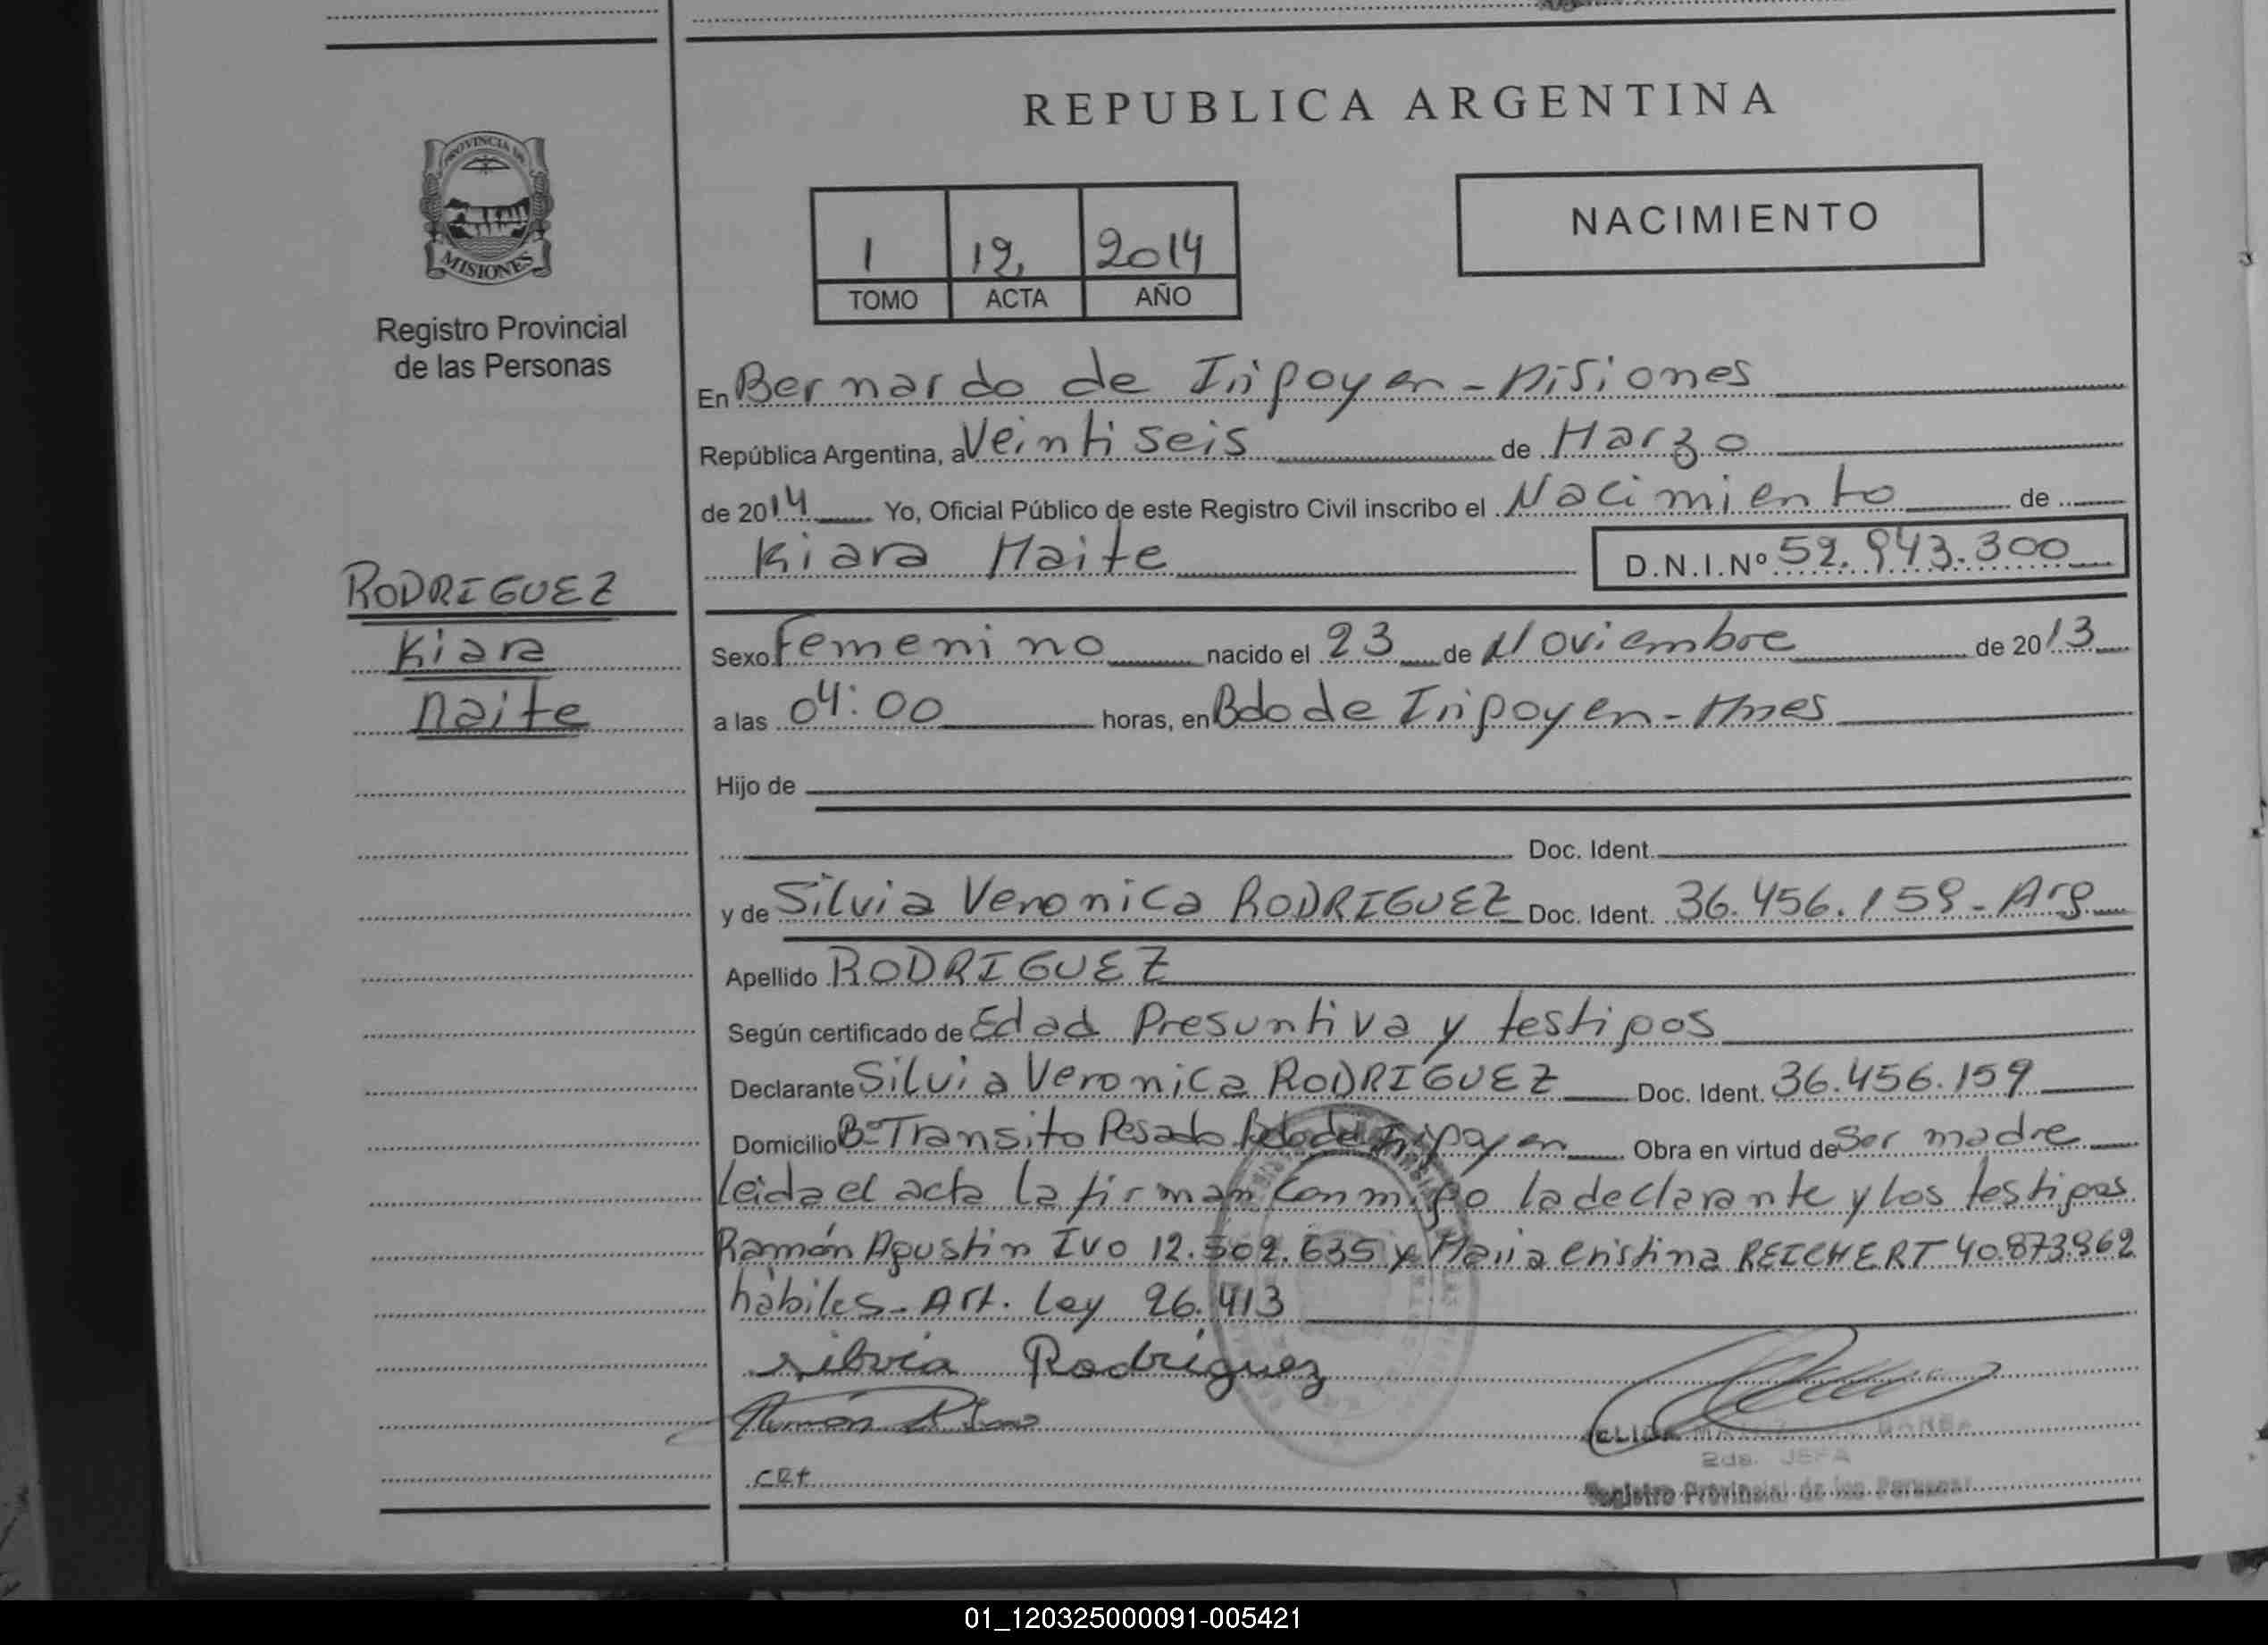 REPUBLICA ARGENTINA
PROVINCIA DE
MISIONES
Registro Provincial
de las Personas
1 12 2014
TOMO ACTA AÑO
NACIMIENTO
En Bernardo de Irigoyen - Misiones
República Argentina, a Veintiseis de Marzo
de 2014 Yo, Oficial Público de este Registro Civil inscribo el Nacimiento de
Kiara Maite D.N.I.Nº 52.943.300
RODRIGUEZ
Kiara
Maite
Sexo Femenino nacido el 23 de Noviembre de 2013
a las 04:00 horas, en Bdo de Irigoyen - Mnes
Hijo de
Doc. Ident.
y de Silvia Veronica RODRIGUEZ Doc. Ident. 36.456.159 - Arg
Apellido RODRIGUEZ
Según certificado de Edad Presuntiva y testigos
Declarante Silvia Veronica RODRIGUEZ Doc. Ident. 36.456.159
Domicilio Bº Transito Pesado Bdo de Irigoyen Obra en virtud de Ser madre
leida el acta la firman conmigo la declarante y los testigos
Ramón Agustin Ivo 12.502.635 y Maria Cristina REICHERT 40.873.962
hábiles - Art. Ley 26.413
silvia Rodriguez
Ramón
CRt
2da. JEFA
Registro Provincial de las Personas
01_120325000091-005421